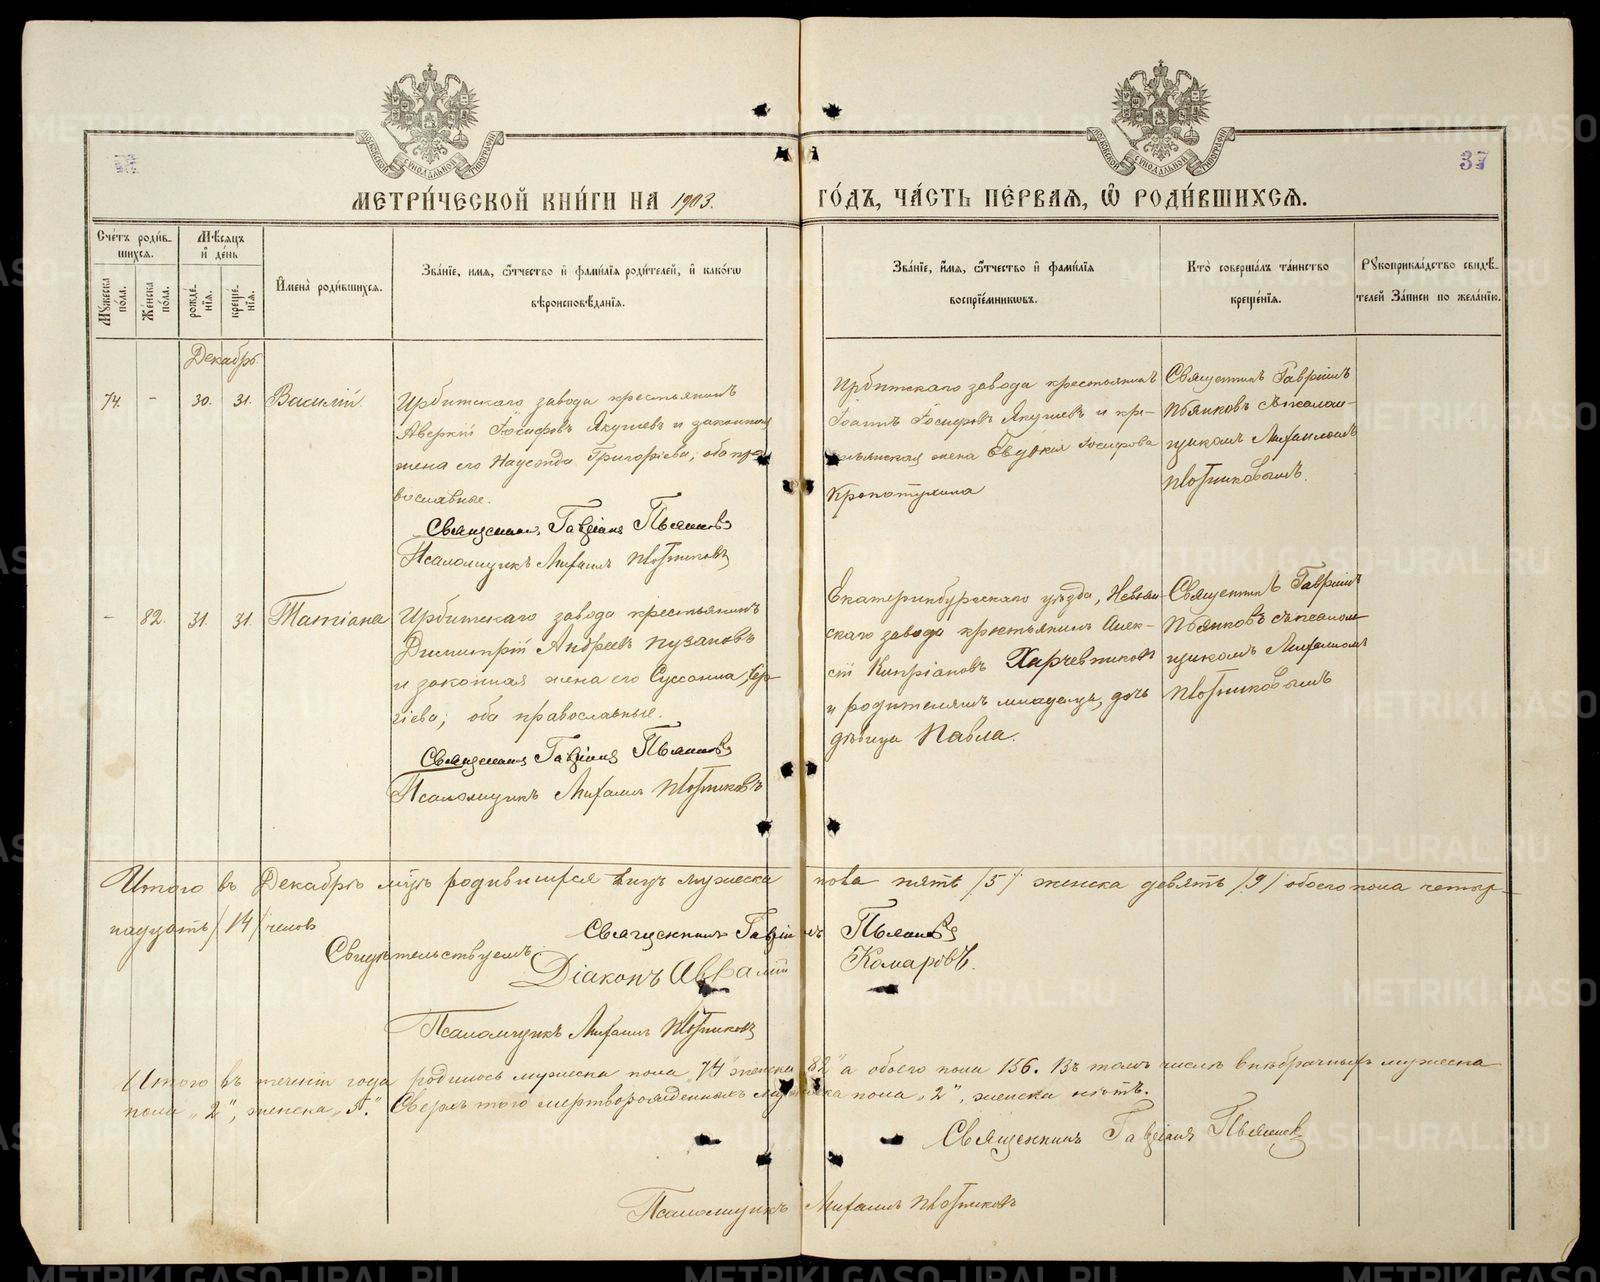 37
МЕТРИ́ЧЕСКОЙ КНИ́ГИ НА 1903. ГО́ДЪ, ЧА́СТЬ ПЕ́РВАѦ, Ѡ҆ РОДИ́ВШИХСѦ.
Сче́тъ роди́в-
шихсѧ.
Мѣсѧцъ
и҆ де́нь
Мꙋжеска по́ла.
Женска по́ла.
рожде́-
нїѧ.
креще́-
нїѧ.
И҆мена̀ роди́вшихсѧ.
Зва́нїе, и҆мѧ, ѻ҆́тчество и҆ фами́лїѧ роди́телей, и҆ како́гѡ
вѣроисповѣ́данїѧ.
Зва́нїе, и҆́мѧ, ѻ҆́тчество и҆ фами́лїѧ
воспрїе́мникѡвъ.
Кто̀ соверша́лъ та́инство
креще́нїѧ.
Рꙋкоприкла́дство свидѣ́-
телей За́писи по жела́нїю.
Декабрь.
74. - 30. 31. Василій.
Ирбитскаго завода крестьянинъ
Аверкій Іосифовъ Якушевъ и законная
жена его Надежда Григоріева, оба пра-
вославные.
Священникъ Гавріилъ Пьянковъ
Псаломщикъ Михаилъ Плотниковъ
Ирбитскаго завода крестьянинъ
Іоаннъ Іосифовъ Якушевъ и кре-
стьянская жена Евдокія Іосифова
Кропотухина
Священникъ Гавріилъ
Пьянковъ съ псалом-
щикомъ Михаиломъ
Плотниковымъ.
- 82. 31. 31. Татіана
Ирбитскаго завода крестьянинъ
Димитрій Андреевъ Пузановъ
и законная жена его Суссанна Сер-
гіева, оба православные.
Священникъ Гавріилъ Пьянковъ
Псаломщикъ Михаилъ Плотниковъ
Екатеринбургскаго уѣзда, Невьян-
скаго завода крестьянинъ Алек-
сій Кипріановъ Харчевниковъ
и родителямъ младенца, дочь
дѣвица Павла.
Священникъ Гавріилъ
Пьянковъ съ псалом-
щикомъ Михаиломъ
Плотниковымъ
Итого въ Декабрѣ мцѣ родившихся мужеска пола пять /5/ женска девять /9/ обоего пола четыр-
надцать /14/ человѣкъ
Священникъ Гавріилъ Пьянковъ
Свидѣтельствуемъ: Діаконъ Авраамій Комаровъ.
Псаломщикъ Михаилъ Плотниковъ
Итого въ теченіи года родилось мужеска пола „74" женска „82" а обоего пола 156. Въ томъ числѣ внѣбрачныхъ мужеска
пола „2", женска „1." Сверхъ того мертворожденныхъ мужеска пола „2", женска нѣтъ.
Священникъ Гавріилъ Пьянковъ
Псаломщикъ Михаилъ Плотниковъ
METRIKI.GASO-URAL.RU